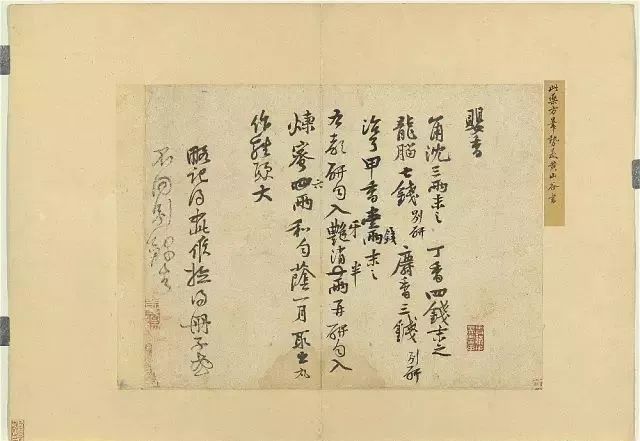 此藥方筆勢是黃山谷書
嬰香
角沈三兩末之 丁香四錢末之
龍腦七錢別研 麝香三錢別研
治弓甲香壹兩錢末之
右都研勻入艷牙消半兩再研勻入
煉蜜四六兩和勻蔭一月取出丸
作雞頭大
略記得如此候檢得冊子或
不同別錄去